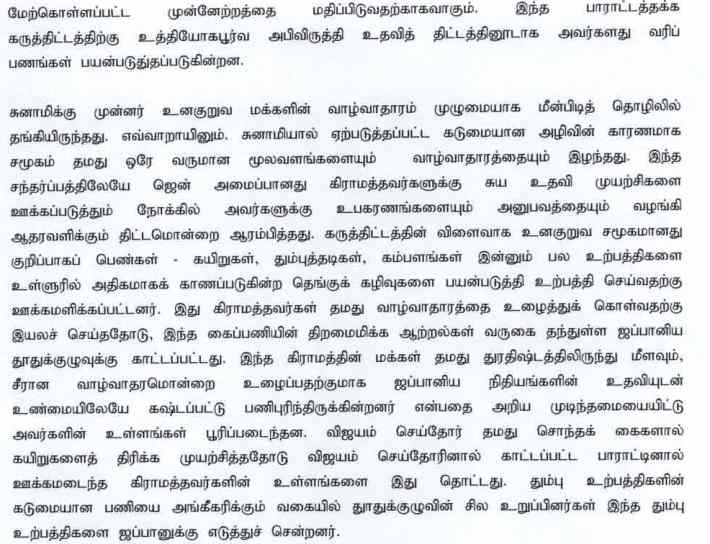 மேற்கொள்ளப்பட்ட முன்னேற்றத்தை மதிப்பிடுவதற்காகவாகும். இந்த பாராட்டத்தக்க
கருத்திட்டத்திற்கு உத்தியோகபூர்வ அபிவிருத்தி உதவித் திட்டத்தினூடாக அவர்களது வரிப்
பணங்கள் பயன்படுத்தப்படுகின்றன.
சுனாமிக்கு முன்னர் உனகுறுவ மக்களின் வாழ்வாதாரம் முழுமையாக மீன்பிடித் தொழிலில்
தங்கியிருந்தது. எவ்வாறாயினும். சுனாமியால் ஏற்படுத்தப்பட்ட கடுமையான அழிவின் காரணமாக
சமூகம் தமது ஒரே வருமான மூலவளங்களையும் வாழ்வாதாரத்தையும் இழந்தது. இந்த
சந்தர்ப்பத்திலேயே ஜென் அமைப்பானது கிராமத்தவர்களுக்கு சுய உதவி முயற்சிகளை
ஊக்கப்படுத்தும் நோக்கில் அவர்களுக்கு உபகரணங்களையும் அனுபவத்தையும் வழங்கி
ஆதரவளிக்கும் திட்டமொன்றை ஆரம்பித்தது. கருத்திட்டத்தின் விளைவாக உனகுறுவ சமூகமானது
குறிப்பாகப் பெண்கள் - கயிறுகள், தும்புத்தடிகள், கம்பளங்கள் இன்னும் பல உற்பத்திகளை
உள்ளுரில் அதிகமாகக் காணப்படுகின்ற தெங்குக் கழிவுகளை பயன்படுத்தி உற்பத்தி செய்வதற்கு
ஊக்கமளிக்கப்பட்டனர். இது கிராமத்தவர்கள் தமது வாழ்வாதாரத்தை உழைத்துக் கொள்வதற்கு
இயலச் செய்ததோடு, இந்த கைப்பணியின் திறமைமிக்க ஆற்றல்கள் வருகை தந்துள்ள ஜப்பானிய
தூதுக்குழுவுக்கு காட்டப்பட்டது. இந்த கிராமத்தின் மக்கள் தமது துரதிஷ்டத்திலிருந்து மீளவும்,
சீரான வாழ்வாதரமொன்றை உழைப்பதற்குமாக ஜப்பானிய நிதியங்களின் உதவியுடன்
உண்மையிலேயே கஷ்டப்பட்டு பணிபுரிந்திருக்கின்றனர் என்பதை அறிய முடிந்தமையையிட்டு
அவர்களின் உள்ளங்கள் பூரிப்படைந்தன. விஜயம் செய்தோர் தமது சொந்தக் கைகளால்
கயிறுகளைத் திரிக்க முயற்சித்ததோடு விஜயம் செய்தோரினால் காட்டப்பட்ட பாராட்டினால்
ஊக்கமடைந்த கிராமத்தவர்களின் உள்ளங்களை இது தொட்டது. தும்பு உற்பத்திகளின்
கடுமையான பணியை அங்கீகரிக்கும் வகையில் தூதுக்குழுவின் சில உறுப்பினர்கள் இந்த தும்பு
உற்பத்திகளை ஜப்பானுக்கு எடுத்துச் சென்றனர்.